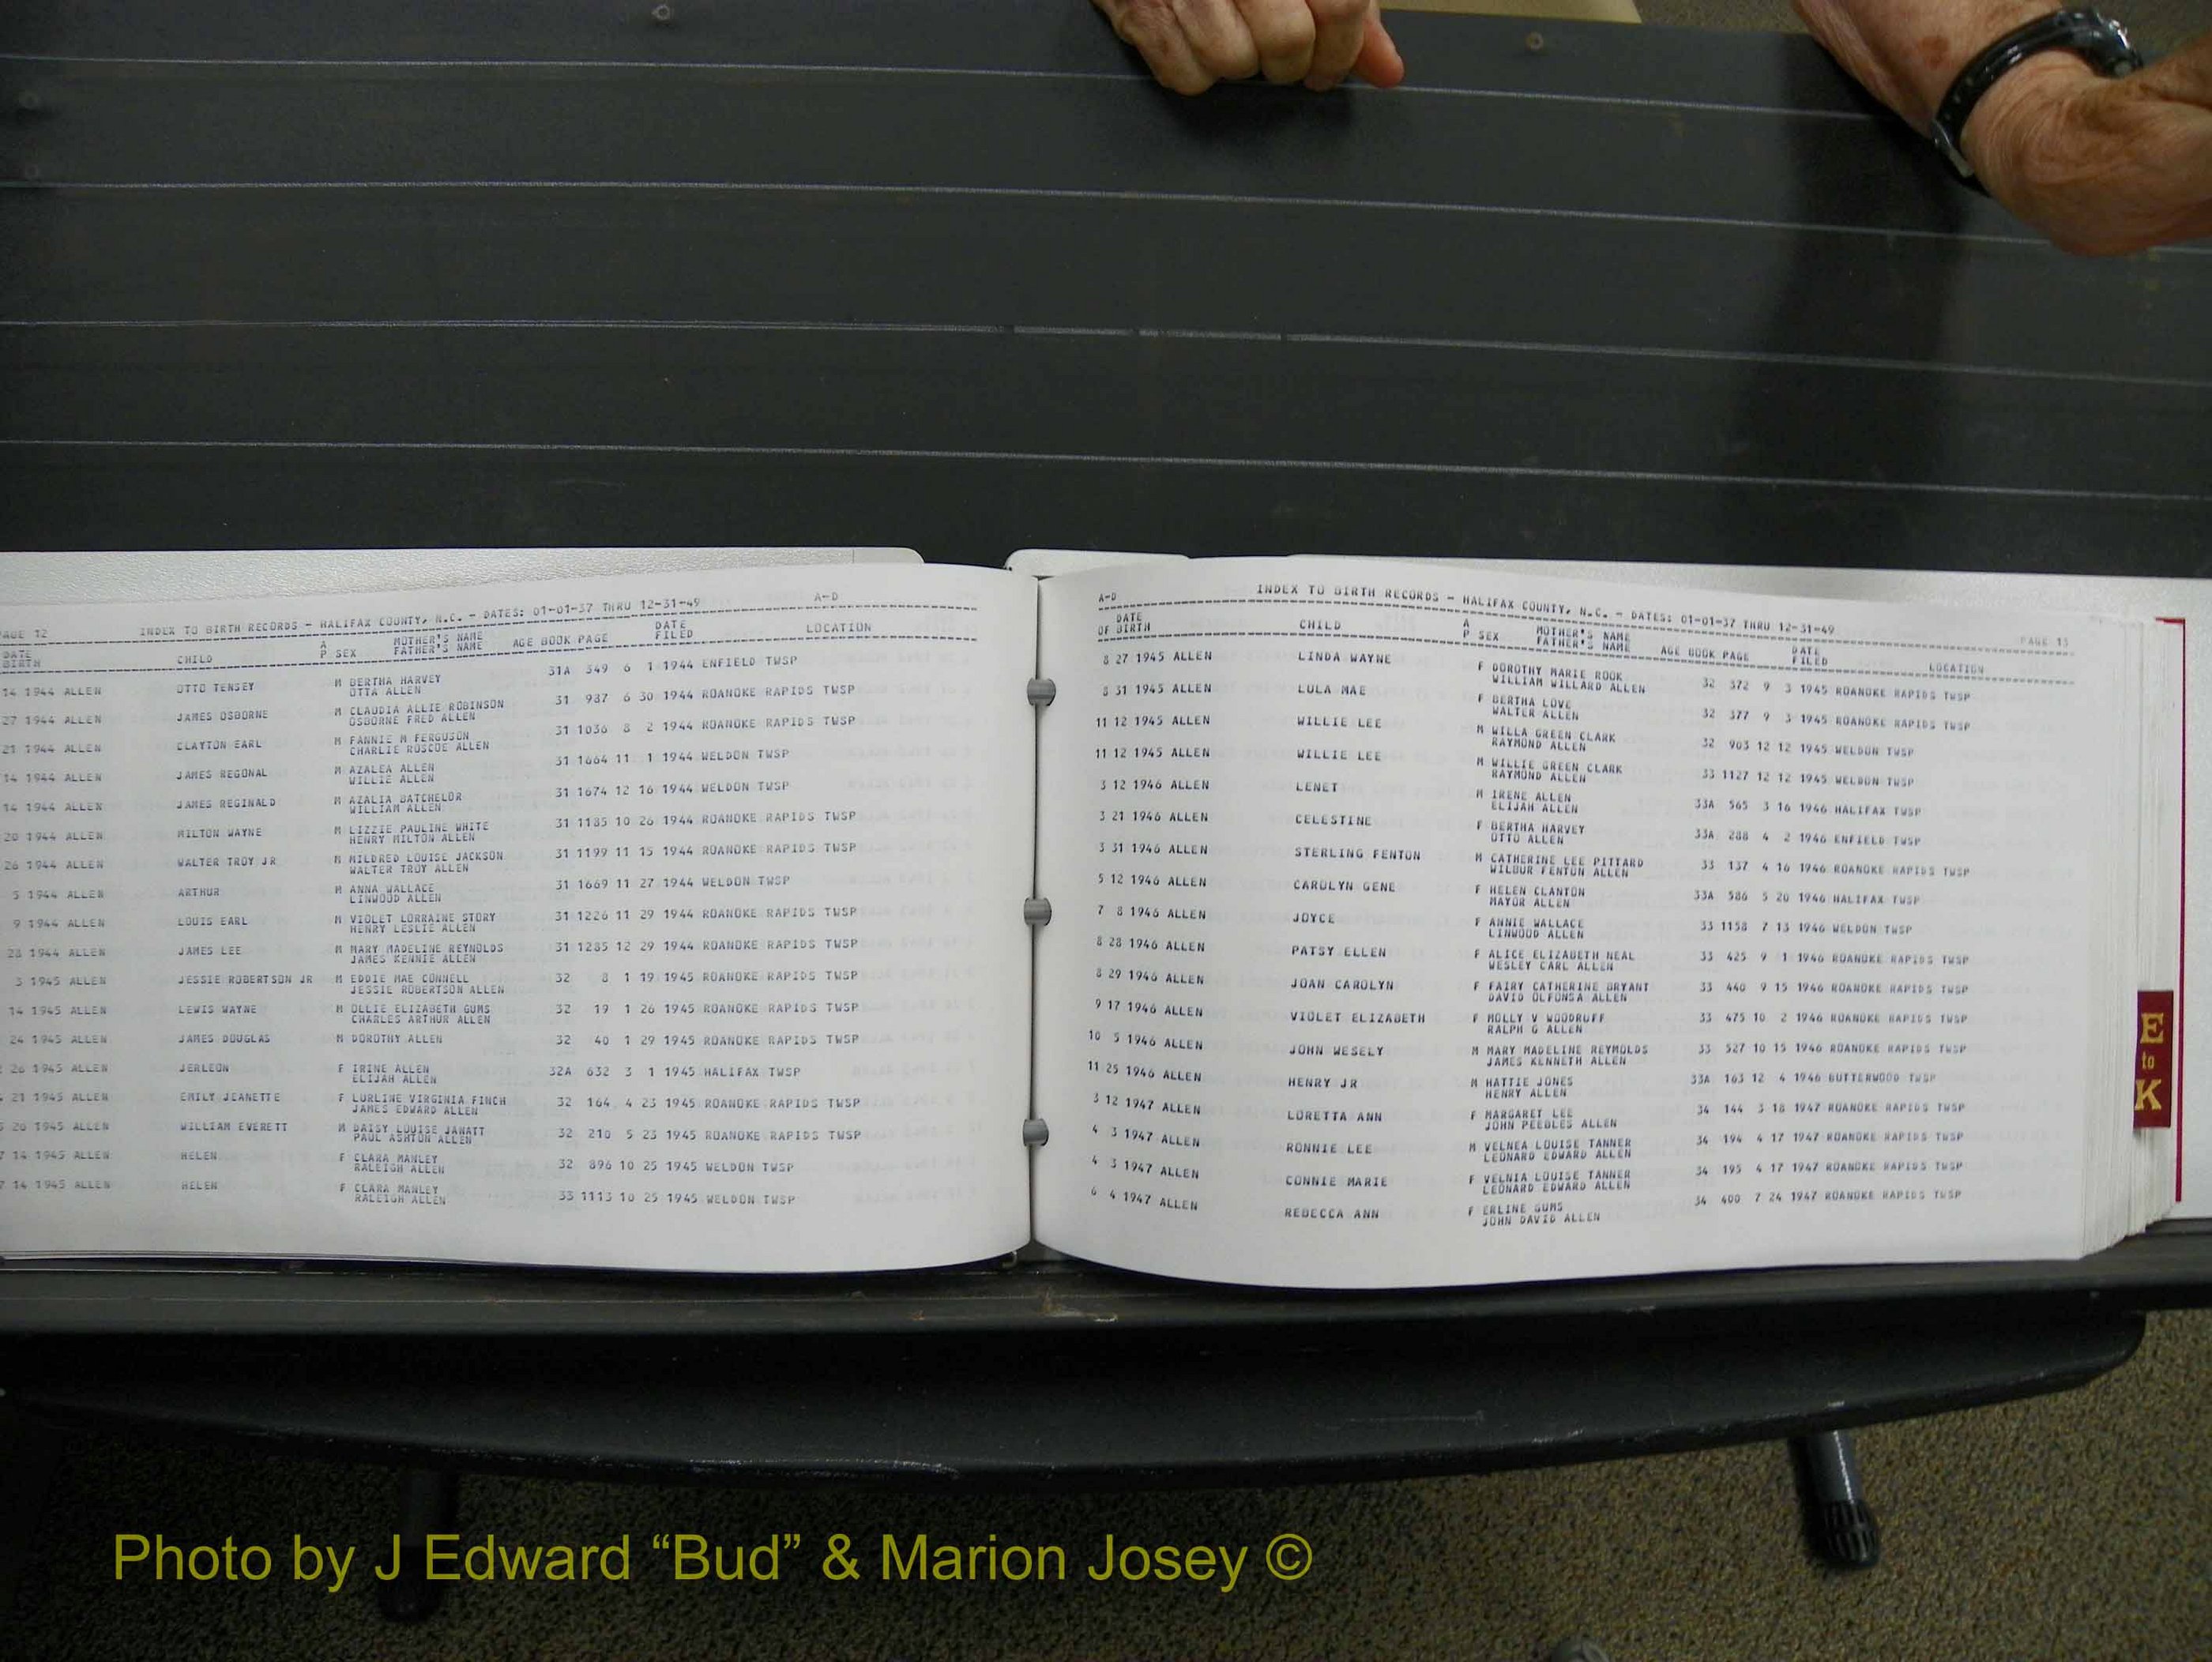 PAGE 12 INDEX TO BIRTH RECORDS - HALIFAX COUNTY, N.C. - DATES: 01-01-37 THRU 12-31-49 A-D
DATE BIRTH CHILD A P SEX MOTHER'S NAME FATHER'S NAME AGE BOOK PAGE DATE FILED LOCATION
14 1944 ALLEN OTTO TENSEY M BERTHA HARVEY 31A 349 6 1 1944 ENFIELD TWSP
OTTA ALLEN
27 1944 ALLEN JAMES OSBORNE M CLAUDIA ALLIE ROBINSON 31 987 6 30 1944 ROANOKE RAPIDS TWSP
OSBORNE FRED ALLEN
21 1944 ALLEN CLAYTON EARL M FANNIE M FERGUSON 31 1036 8 2 1944 ROANOKE RAPIDS TWSP
CHARLIE ROSCOE ALLEN
14 1944 ALLEN JAMES REGONAL M AZALEA ALLEN 31 1664 11 1 1944 WELDON TWSP
WILLIE ALLEN
14 1944 ALLEN JAMES REGINALD M AZALIA BATCHELOR 31 1674 12 16 1944 WELDON TWSP
WILLIAM ALLEN
20 1944 ALLEN MILTON WAYNE M LIZZIE PAULINE WHITE 31 1185 10 26 1944 ROANOKE RAPIDS TWSP
HENRY MILTON ALLEN
26 1944 ALLEN WALTER TROY JR M MILDRED LOUISE JACKSON 31 1199 11 15 1944 ROANOKE RAPIDS TWSP
WALTER TROY ALLEN
5 1944 ALLEN ARTHUR M ANNA WALLACE 31 1669 11 27 1944 WELDON TWSP
LINWOOD ALLEN
9 1944 ALLEN LOUIS EARL M VIOLET LORRAINE STORY 31 1226 11 29 1944 ROANOKE RAPIDS TWSP
HENRY LESLIE ALLEN
28 1944 ALLEN JAMES LEE M MARY MADELINE REYNOLDS 31 1285 12 29 1944 ROANOKE RAPIDS TWSP
JAMES KENNIE ALLEN
3 1945 ALLEN JESSIE ROBERTSON JR M EDDIE MAE CONNELL 32 8 1 19 1945 ROANOKE RAPIDS TWSP
JESSIE ROBERTSON ALLEN
14 1945 ALLEN LEWIS WAYNE M OLLIE ELIZABETH GUMS 32 19 1 26 1945 ROANOKE RAPIDS TWSP
CHARLES ARTHUR ALLEN
24 1945 ALLEN JAMES DOUGLAS M DOROTHY ALLEN 32 40 1 29 1945 ROANOKE RAPIDS TWSP
26 1945 ALLEN JERLEON F IRINE ALLEN 32A 632 3 1 1945 HALIFAX TWSP
ELIJAH ALLEN
21 1945 ALLEN EMILY JEANETTE F LURLINE VIRGINIA FINCH 32 164 4 23 1945 ROANOKE RAPIDS TWSP
JAMES EDWARD ALLEN
20 1945 ALLEN WILLIAM EVERETT M DAISY LOUISE JANATT 32 210 5 23 1945 ROANOKE RAPIDS TWSP
PAUL ASHTON ALLEN
7 14 1945 ALLEN HELEN F CLARA MANLEY 32 896 10 25 1945 WELDON TWSP
RALEIGH ALLEN
7 14 1945 ALLEN HELEN F CLARA MANLEY 33 1113 10 25 1945 WELDON TWSP
RALEIGH ALLEN
A-D INDEX TO BIRTH RECORDS - HALIFAX COUNTY, N.C. - DATES: 01-01-37 THRU 12-31-49 PAGE 13
DATE OF BIRTH CHILD A P SEX MOTHER'S NAME FATHER'S NAME AGE BOOK PAGE DATE FILED LOCATION
8 27 1945 ALLEN LINDA WAYNE F DOROTHY MARIE ROOK 32 372 9 3 1945 ROANOKE RAPIDS TWSP
WILLIAM WILLARD ALLEN
8 31 1945 ALLEN LULA MAE F BERTHA LOVE 32 377 9 3 1945 ROANOKE RAPIDS TWSP
WALTER ALLEN
11 12 1945 ALLEN WILLIE LEE M WILLA GREEN CLARK 32 903 12 12 1945 WELDON TWSP
RAYMOND ALLEN
11 12 1945 ALLEN WILLIE LEE M WILLIE GREEN CLARK 33 1127 12 12 1945 WELDON TWSP
RAYMOND ALLEN
3 12 1946 ALLEN LENET M IRENE ALLEN 33A 565 3 16 1946 HALIFAX TWSP
ELIJAH ALLEN
3 21 1946 ALLEN CELESTINE F BERTHA HARVEY 33A 288 4 2 1946 ENFIELD TWSP
OTTO ALLEN
3 31 1946 ALLEN STERLING FENTON M CATHERINE LEE PITTARD 33 137 4 16 1946 ROANOKE RAPIDS TWSP
WILBUR FENTON ALLEN
5 12 1946 ALLEN CAROLYN GENE F HELEN CLANTON 33A 586 5 20 1946 HALIFAX TWSP
MAYOR ALLEN
7 8 1946 ALLEN JOYCE F ANNIE WALLACE 33 1158 7 13 1946 WELDON TWSP
LINWOOD ALLEN
8 28 1946 ALLEN PATSY ELLEN F ALICE ELIZABETH NEAL 33 425 9 1 1946 ROANOKE RAPIDS TWSP
WESLEY CARL ALLEN
8 29 1946 ALLEN JOAN CAROLYN F FAIRY CATHERINE BRYANT 33 440 9 15 1946 ROANOKE RAPIDS TWSP
DAVID OLFONSA ALLEN
9 17 1946 ALLEN VIOLET ELIZABETH F MOLLY V WOODRUFF 33 475 10 2 1946 ROANOKE RAPIDS TWSP
RALPH G ALLEN
10 5 1946 ALLEN JOHN WESELY M MARY MADELINE REYMOLDS 33 527 10 15 1946 ROANOKE RAPIDS TWSP
JAMES KENNETH ALLEN
11 25 1946 ALLEN HENRY JR M HATTIE JONES 33A 163 12 4 1946 BUTTERWOOD TWSP
HENRY ALLEN
3 12 1947 ALLEN LORETTA ANN F MARGARET LEE 34 144 3 18 1947 ROANOKE RAPIDS TWSP
JOHN PEEBLES ALLEN
4 3 1947 ALLEN RONNIE LEE M VELNEA LOUISE TANNER 34 194 4 17 1947 ROANOKE RAPIDS TWSP
LEONARD EDWARD ALLEN
4 3 1947 ALLEN CONNIE MARIE F VELNIA LOUISE TANNER 34 195 4 17 1947 ROANOKE RAPIDS TWSP
LEONARD EDWARD ALLEN
6 4 1947 ALLEN REBECCA ANN F ERLINE GUMS 34 400 7 24 1947 ROANOKE RAPIDS TWSP
JOHN DAVID ALLEN
E
to
K
Photo by J Edward “Bud” & Marion Josey ©